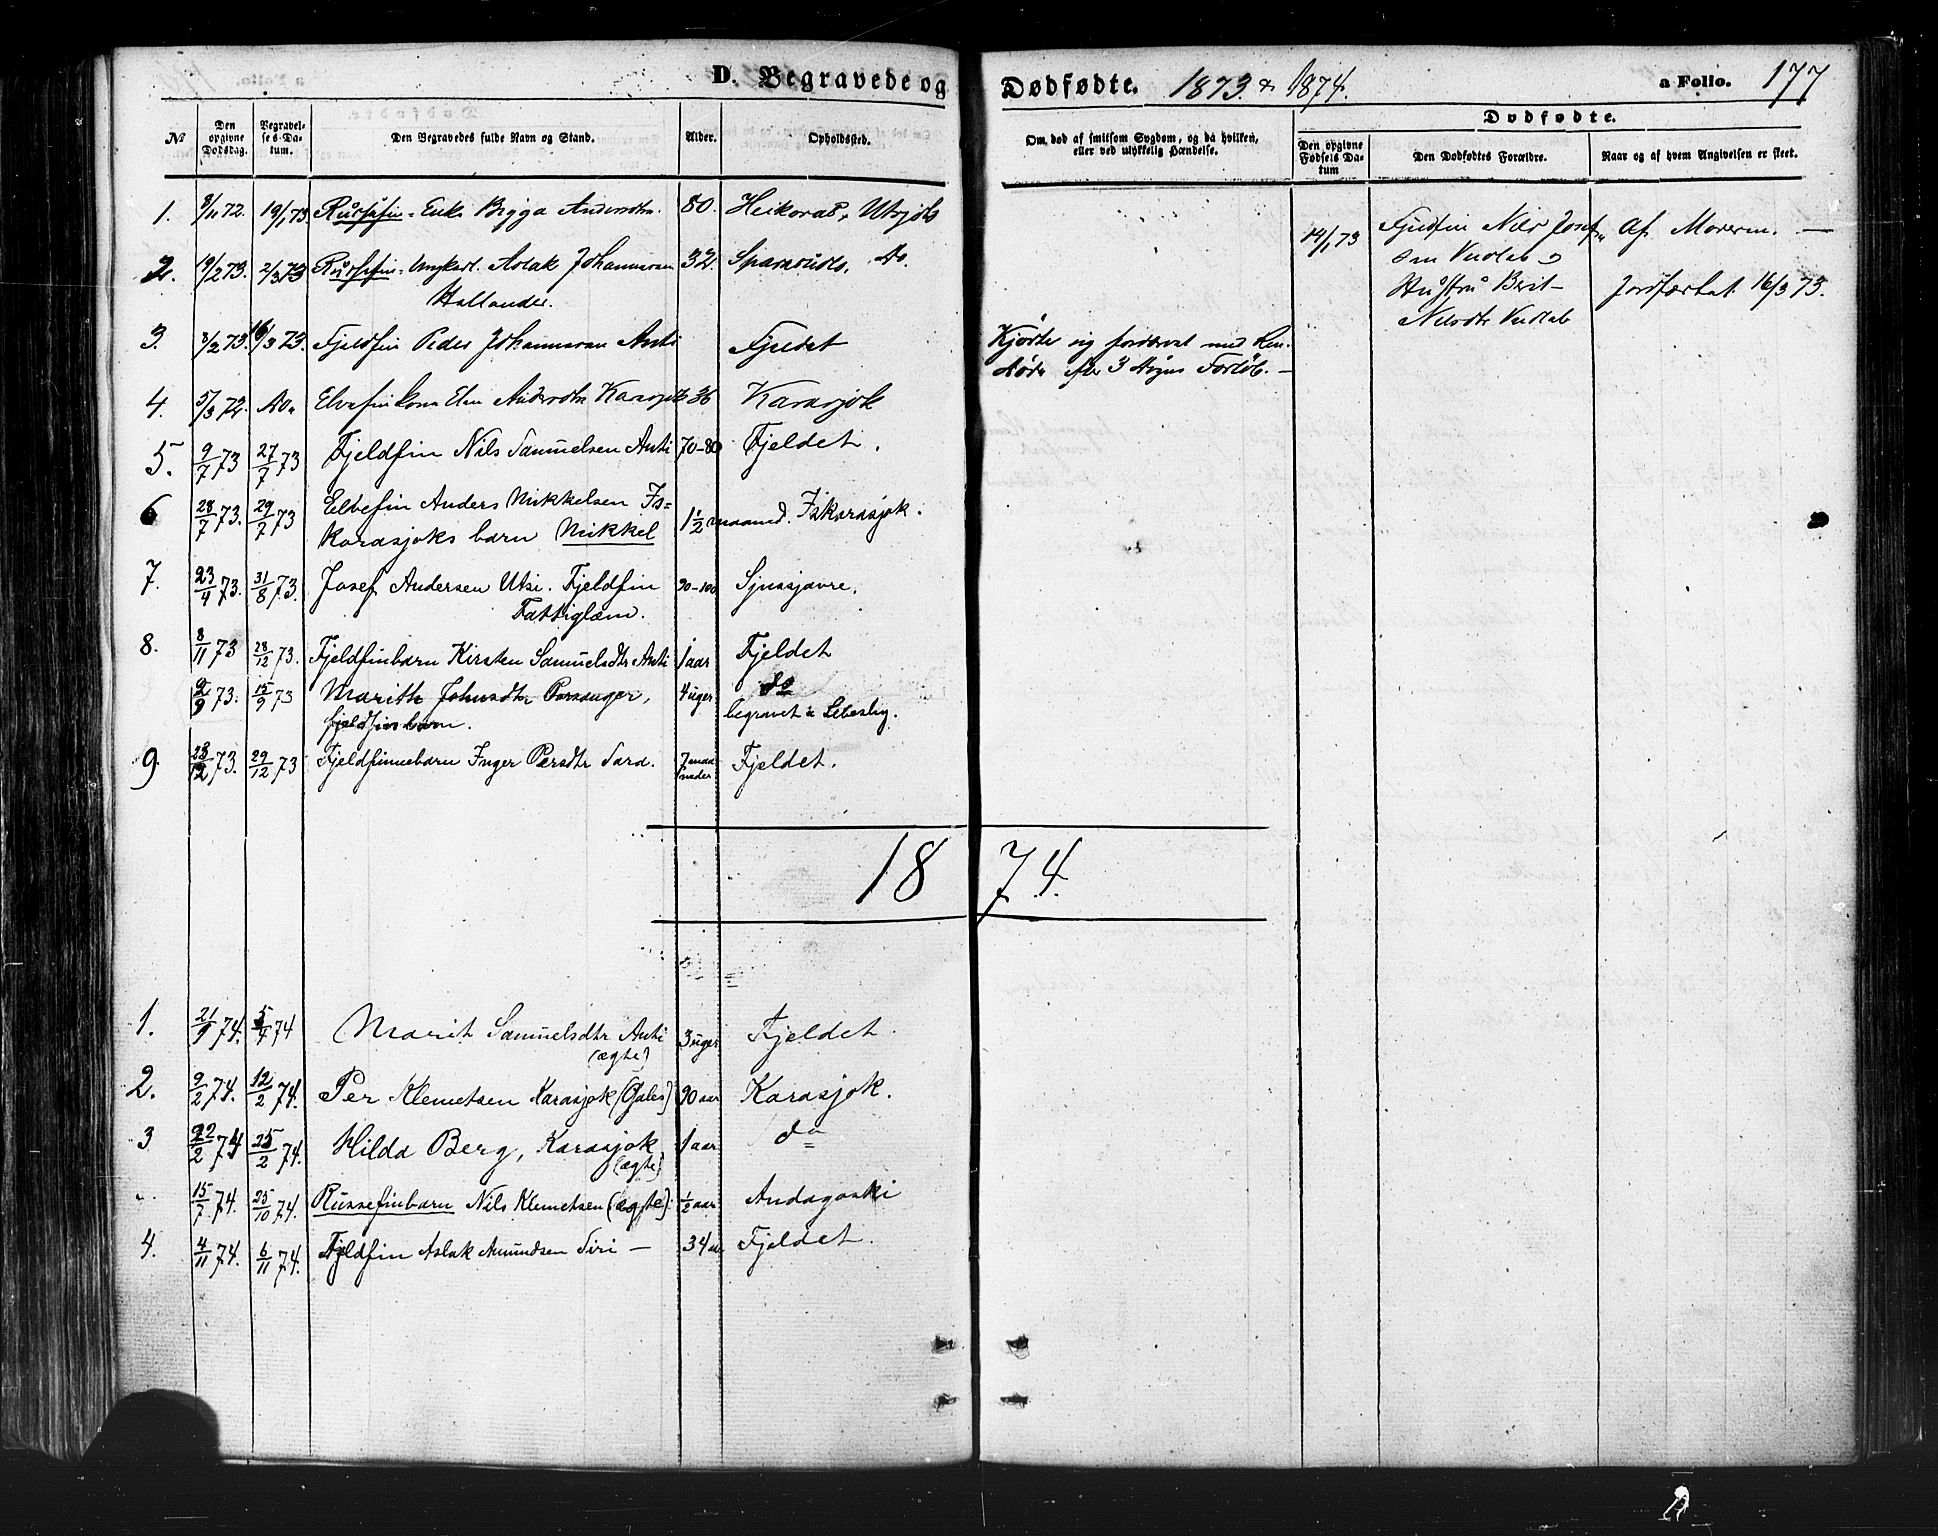 D. Begravede og Dødfødte. 1873 & 1874. a Folio. 177
Dødfødte.
No
Den opgivne Dødsdag.
Begravelses-Datum.
Den Begravedes fulde Navn og Stand.
Alder.
Opholdssted.
Om død af smitsom Sygdom, og da hvilken, eller ved ulykkelig Hændelse.
Den opgivne Fødsels Datum
Den Dødfødtes Forældre.
Naar og af hvem Angivelsen er skeet.
1. 8/11 72. 19/1 73 Russefin-Enke Bigga Andersdtr. 80. Utsjok
14/1 73 Fjeldfin Nils Josef- Af Moderen. —
sen Vuolab o
Hustru Berit Jordfæstet 16/3 73.
Nilsdtr Vuolab
2. 19/2 73. 2/3 73 Russefin-Ungkarl. Aslak Johannesen 32. do.
Hallander.
3. 8/2 73. 16/3 73. Fjeldfin Peder Johannesen Anti Fjeldet Kjørte sig fordærvet med Ren.
Døde efter 3 Døgns Forløb. —
4. 5/3 72. do. Elvefinkone Elen Andersdtr Karasjok 36 Karasjok
5. 9/7 73 27/7 73 Fjeldfin Nils Samuelsen Anti 70-80 Fjeldet.
6 28/7 73. 29/7 73 Elvefin Anders Mikkelsen Is= 1 1/2 maaned. Iskarasjok.
karasjoks barn Mikkel
7. 23/4 73. 31/8 73. Josef Andersen Utsi. Fjeldfin 90-100 Sjussjavre.
Fattiglem.
8. 8/11 73 28/12 73. Fjeldfinbarn Kirsten Samuelsdtr Anti 1 aar Fjeldet
2/9 73. 15/9 73 Marith Johnsdtr Porsanger, 4 uger do
fjeldfinbarn. begravet i Lebesby.
9. 23/12 73. 29/12 73 Fjeldfinnebarn Inger Persdtr Sara. 7 maa
neder Fjeldet.
1874.
1. 21/9 74. 74 Marit Samuelsdtr Anti 3 uger Fjeldet.
(ægte)
2. 9/2 74. 12/2 74. Per Klemetsen Karasjok (Gales) 90 aar Karasjok.
3 22/2 74 25/2 74. Hilda Berg, Karasjok 1 aar do
(ægte)
15/7 74. 25/10 74. Russefinbarn Nils Klemetsen (ægte) 1/2 aar Andagoski
4. 4/11 74. 6/11 74. Fjeldfin Aslak Amundsen Siri — 34 aar Fjeldet.